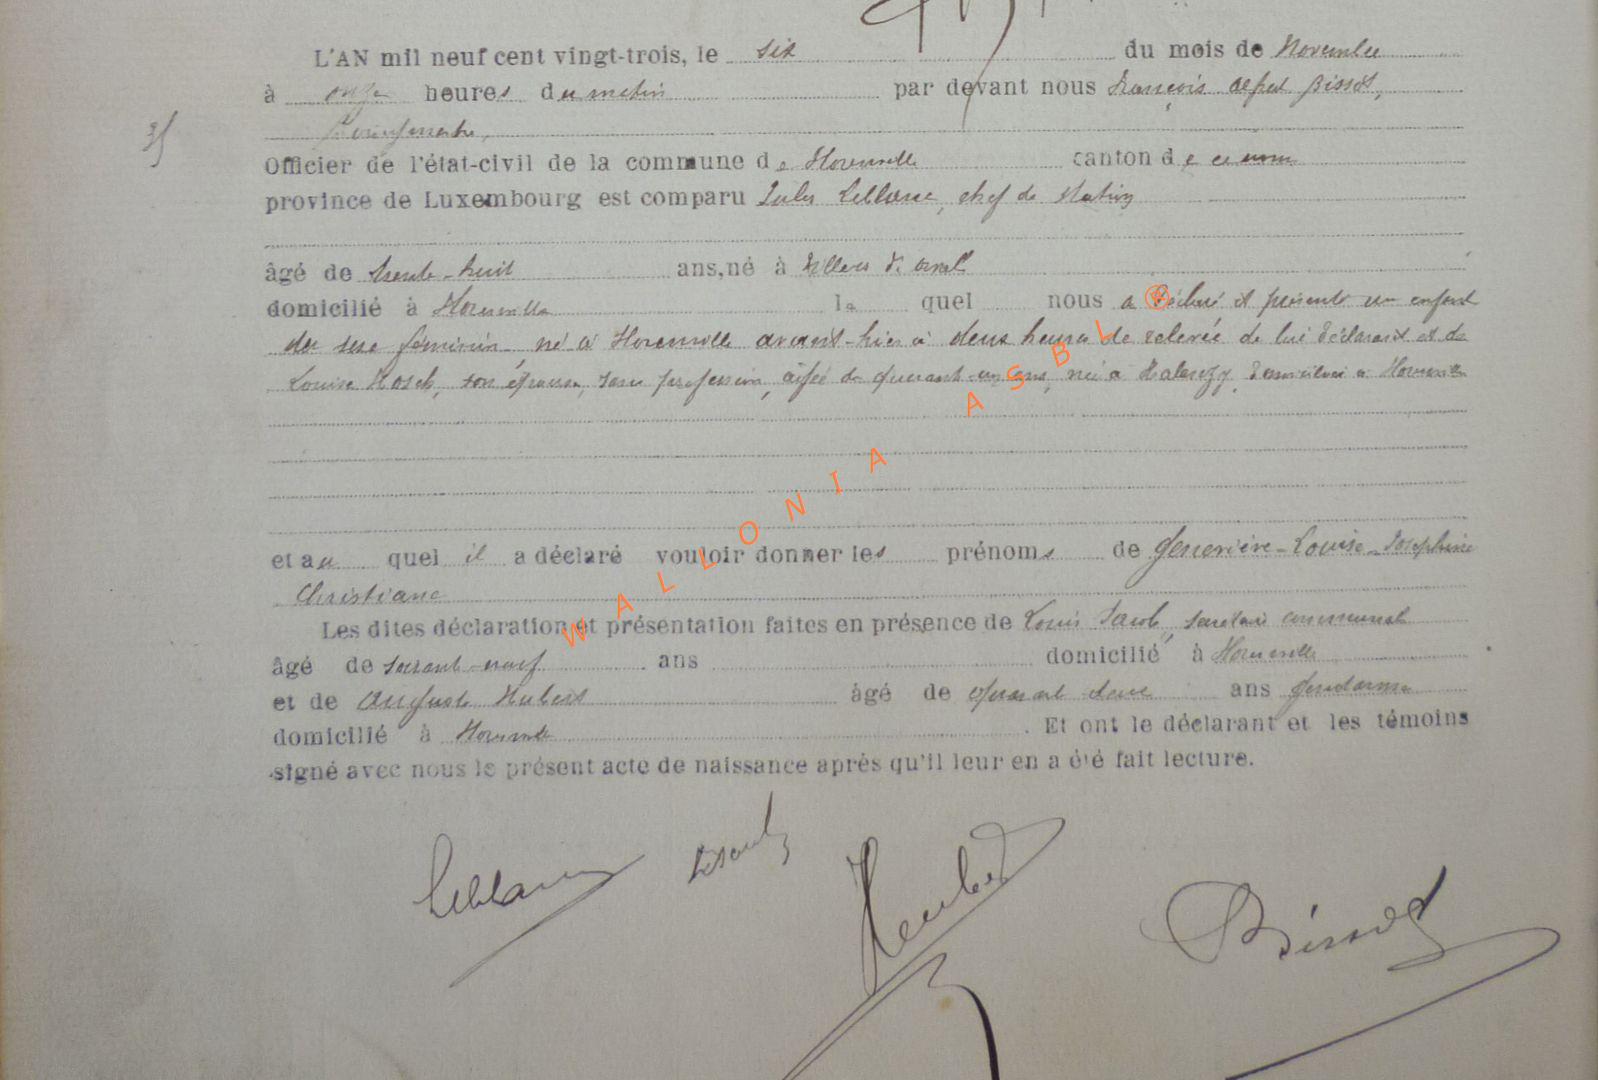 L'AN mil neuf cent vingt-trois, le six du mois de Novembre
à onze heures du matin par devant nous François Alfred Bissot,
Bourgmestre,
35
Officier de l'état-civil de la commune de Florenville canton de ce nom
province de Luxembourg est comparu Jules Leblanc, chef de station
âgé de trente-huit ans, né à Villers dt Orval
domicilié à Florenville le quel nous a déclaré et présenté un enfant
du sexe féminin né à Florenville avant-hier à deux heures de relevée de lui déclarant et de
Louise Hosch, son épouse, sans profession, âgée de quarante-un ans, née à Halanzy, domiciliée à Florenville
et au quel il a déclaré vouloir donner les prénoms de Geneviève-Louise-Joséphine
Christiane
Les dites déclaration et présentation faites en présence de Louis Jacob, secrétaire communal
âgé de soixante-neuf ans domicilié à Florenville
et de Auguste Hubert âgé de quarante deux ans gendarme
domicilié à Florenville. Et ont le déclarant et les témoins
signé avec nous le présent acte de naissance après qu'il leur en a été fait lecture.
Leblanc LJacob Hubert Bissot
WALLONIA ASBL ®